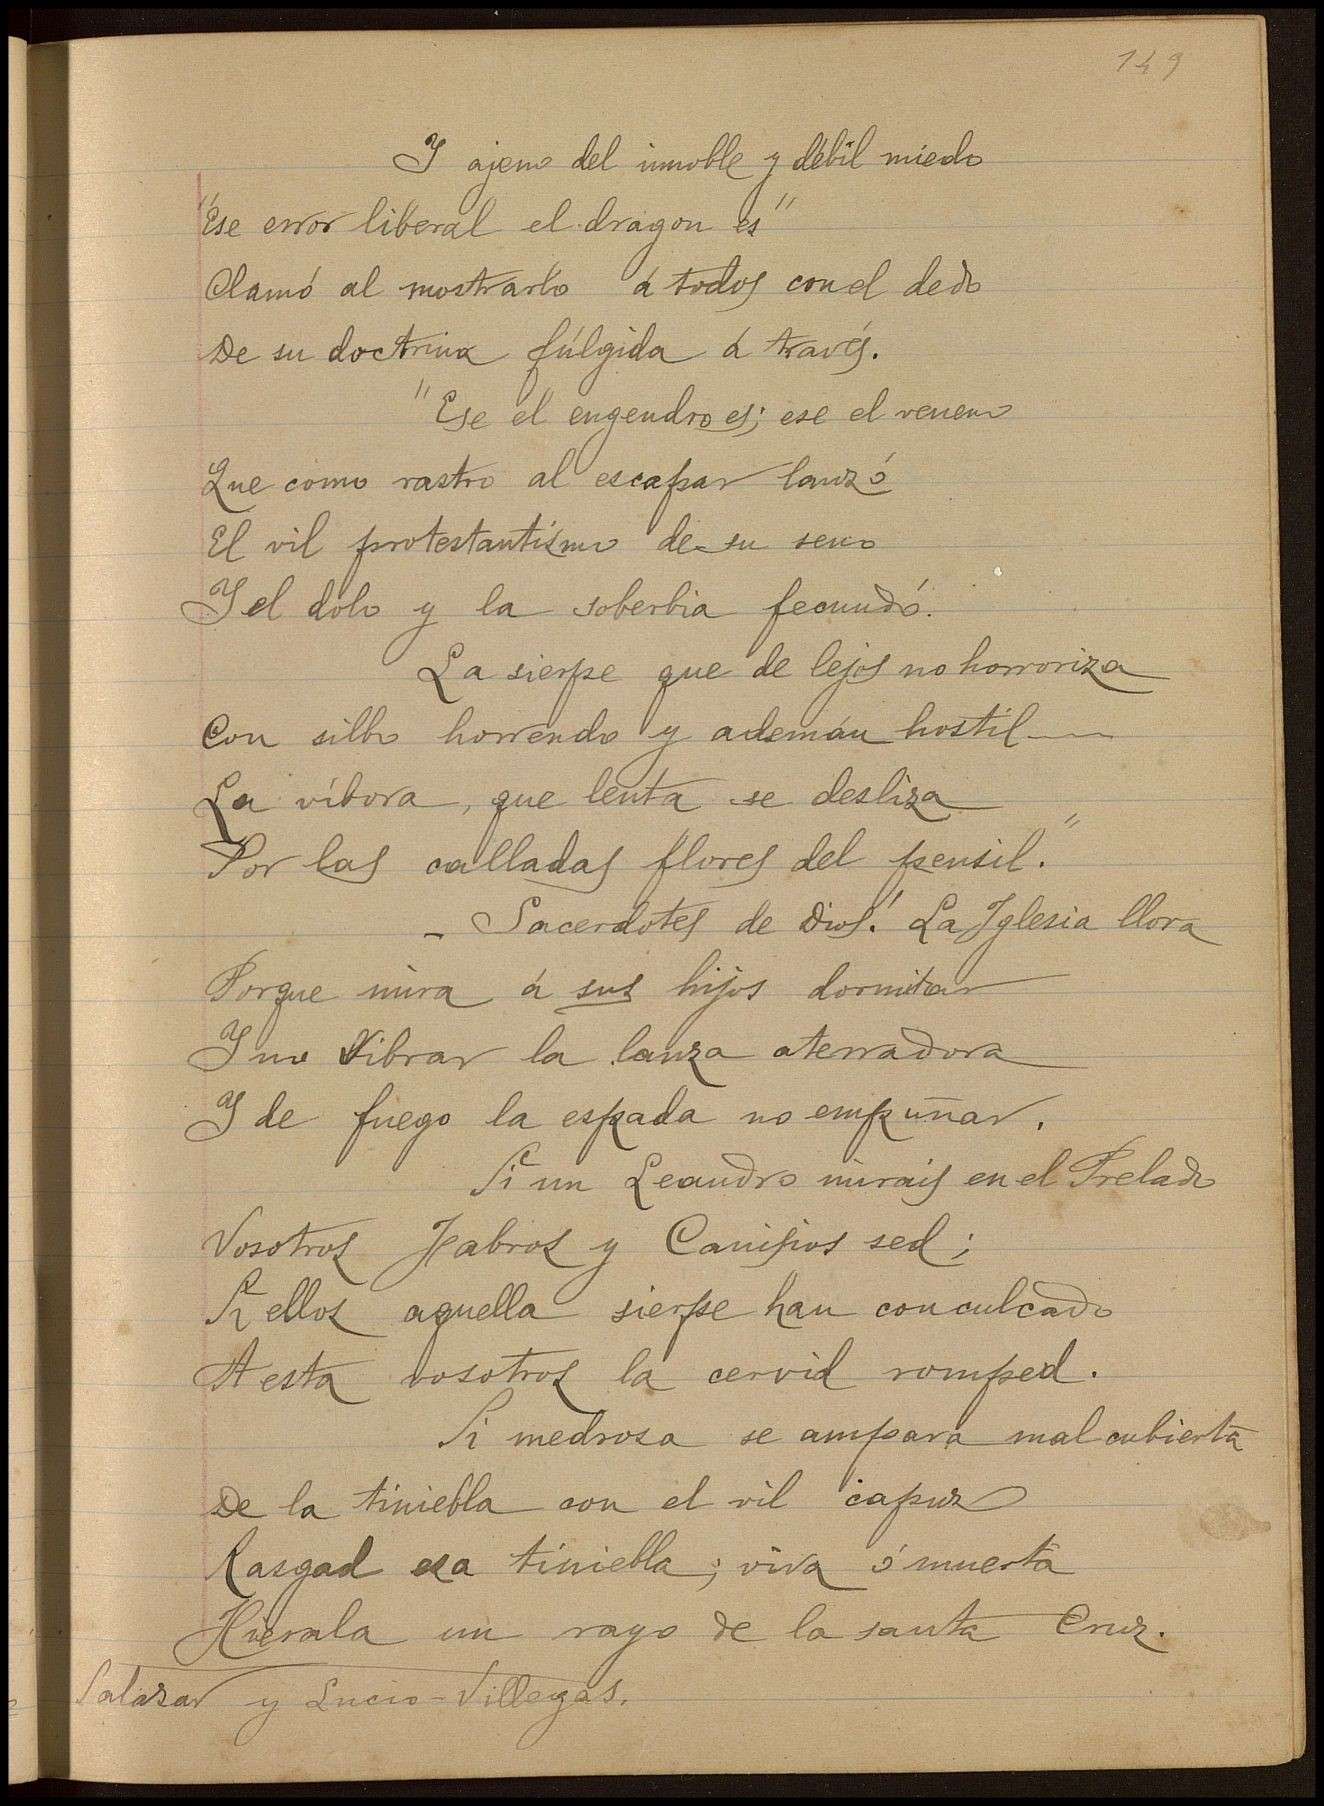 149
Y ajeno del innoble y débil miedo
"Ese error liberal el dragon es"
Clamó al mostrarlo á todos con el dedo
De su doctrina fúlgida á través.
"Ese el engendro es; ese el veneno
Que como rastro al escapar lanzó
El vil protestantismo de su seno
Y el dolo y la soberbia fecundó.
La sierpe que de lejos no horroriza
Con silbo horrendo y ademán hostil
La víbora, que lenta se desliza
Por las calladas flores del pensil."
- Sacerdotes de Dios! La Iglesia llora
Porque mira á sus hijos dormitar
Y no vibrar la lanza aterradora
Y de fuego la espada no empuñar.
Si un Leandro mirais en el Prelado
Vosotros Fabros y Canisios sed;
Si ellos aquella sierpe han conculcado
A esta vosotros la cervid romped.
Si medrosa se ampara mal cubierta
De la tiniebla con el vil capuz
Rasgad esa tiniebla; viva ó muerta
Hierala un rayo de la santa Cruz.
Salazar y Lucio-Villegas.